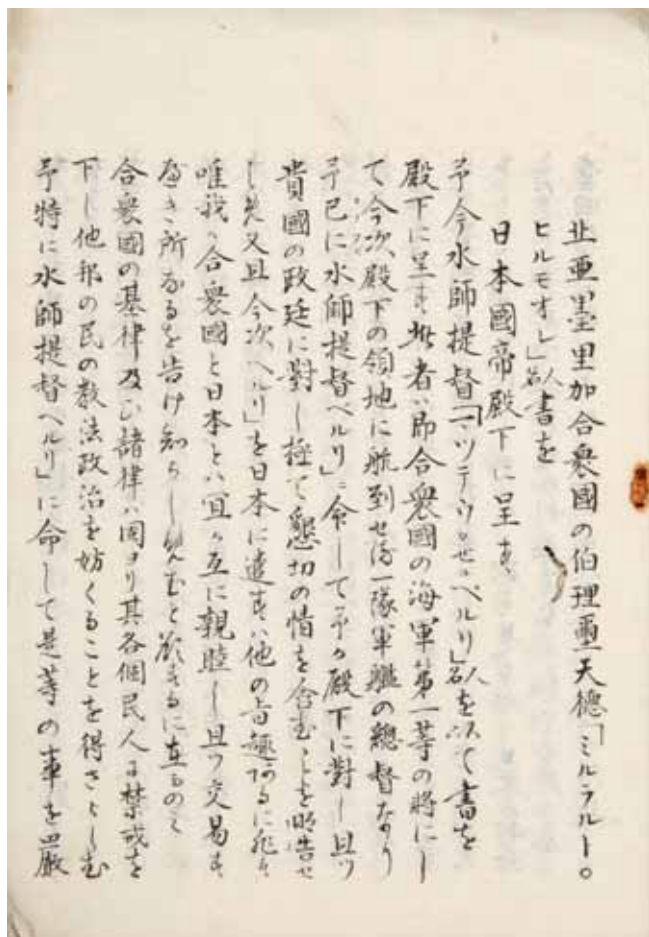 北亜墨里加合衆國の伯理璽天德「ミルラルー。
ヒルモオレ」名人書を
日本國帝殿下に呈す、
予今水師提督「マツテウセ・ペルリ」名人を以て書を
殿下に呈す此者ハ即合衆國の海軍第一等の將にし
て今次殿下の領地に航到せる一隊軍艦の總督なり
予已に水師提督ペルリニ命して予か殿下に對し且ツ
貴國の政廷に對し極て懇切の情を含むことを明告せ
しめ又且今次ヘルリ」を日本に遣すハ他の旨趣あるに非す
唯我カ合衆國と日本とハ宜く互に親睦し且ツ交易す
べき所なるを告け知らしめむと欲するに在るのミ
合衆國の基律及ひ諸律ハ固ヨリ其各個民人に禁戒を
下し他邦の民の教法政治を妨くることを得さらしむ
予特に水師提督ヘルリ」に命して是等の事を嚴